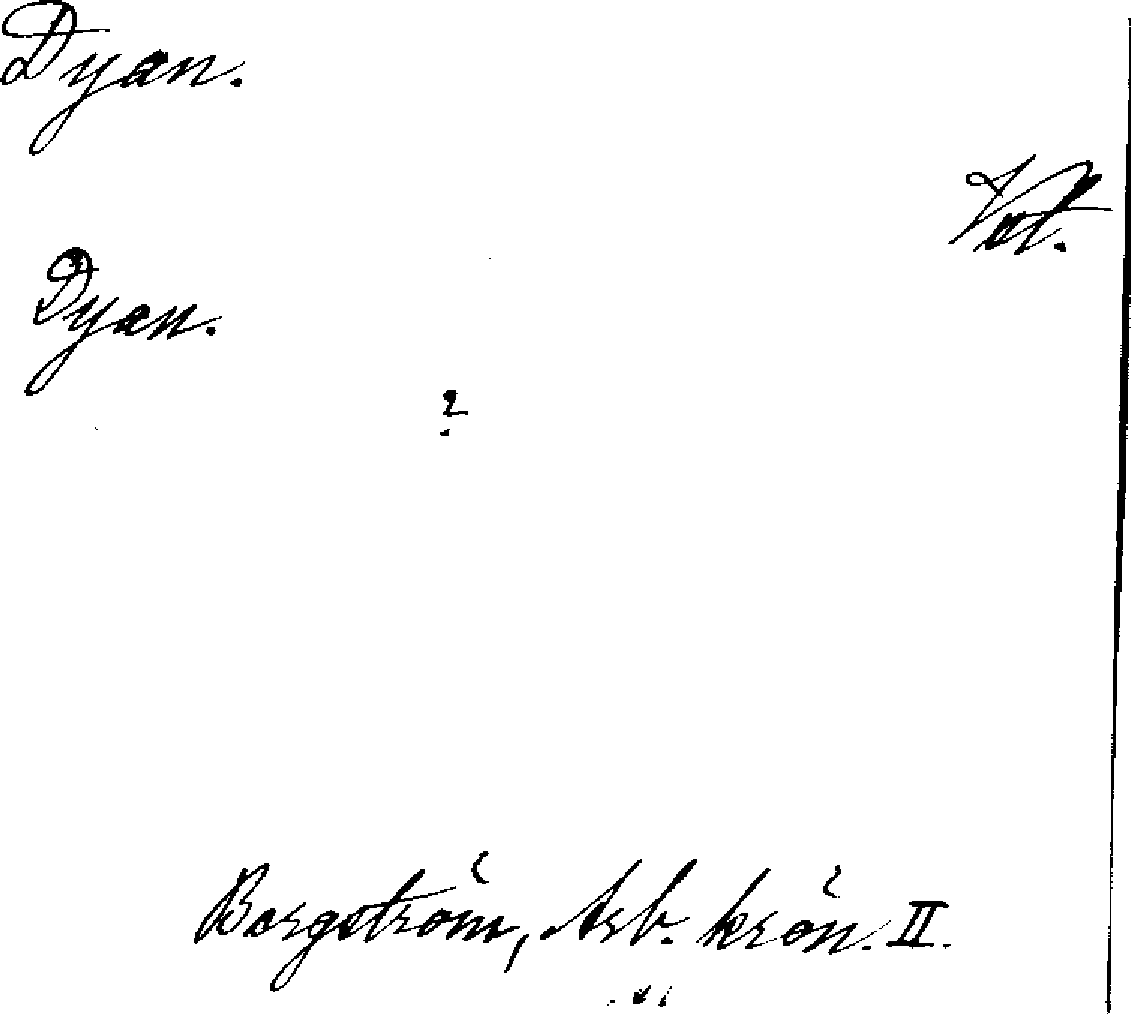 Dyan.
Vol.
Dyan.
?
Borgström, Arb. krön. II.